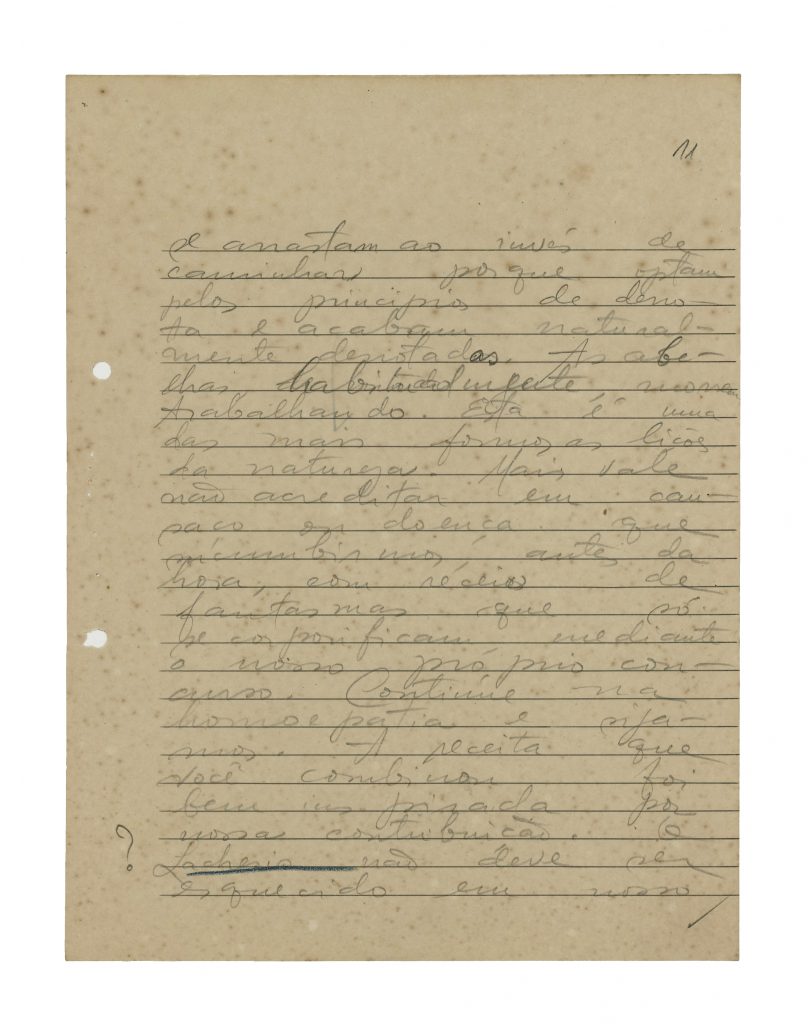 11
se arrastam ao invés de
caminhar porque optam
pelos principios de derro-
ta e acabam natural-
mente derrotadas. As abe-
lhas, habitualmente, morrem
trabalhando. Esta é uma
das mais formosas lições
da natureza. Mais vale
não acreditar em can-
saço ou doença que
sucumbirmos, antes da
hora, com receios de
fantasmas que só
se corporificam mediante
o nosso próprio con-
curso. Continúe na
homoepatia e sija-
mos. A receita que
você combinou foi
bem inspirada por
nossa contribuição. O
? Lachesis não deve ser
esquecido em nosso